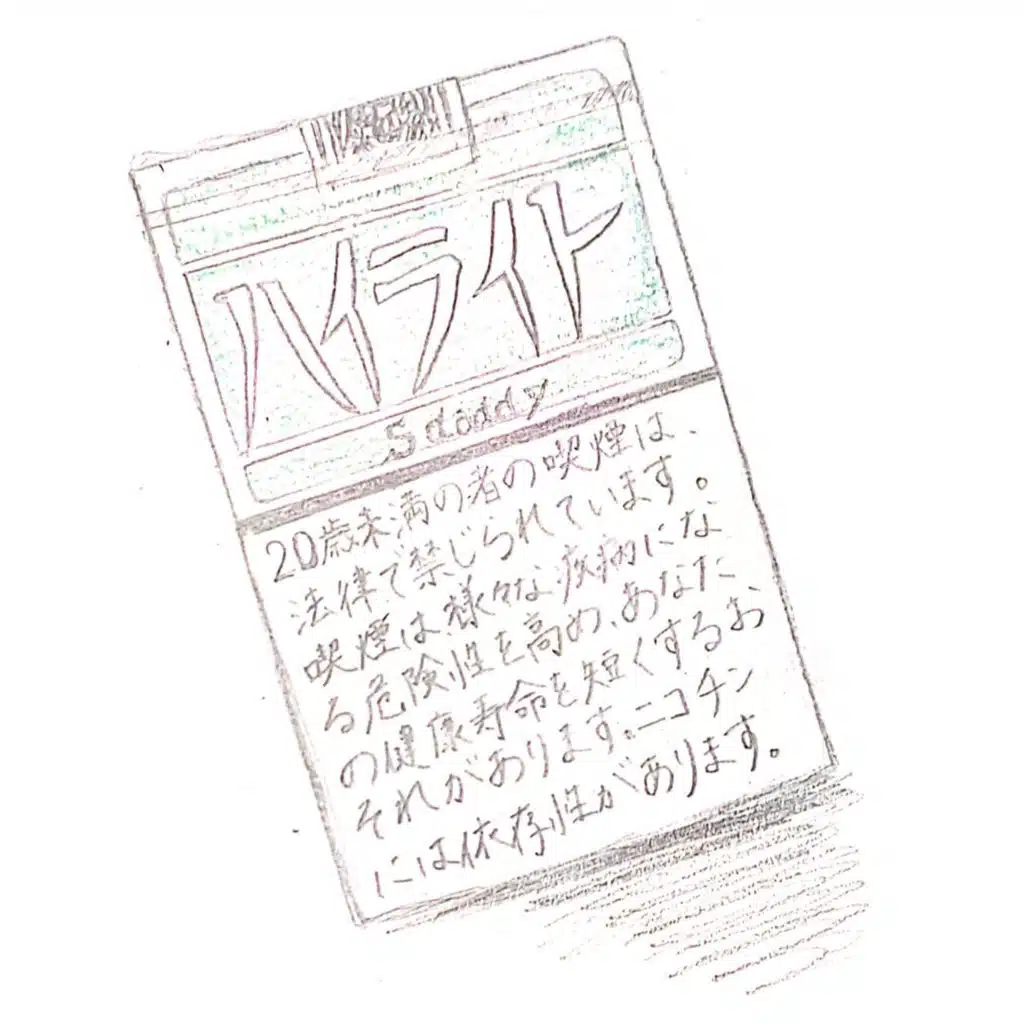 ハイライト
5daddy
20歳未満の者の喫煙は、
法律で禁じられています。
喫煙は様々な疾病にな
る危険性を高め、あなた
の健康寿命を短くするお
それがあります。ニコチン
には依存性があります。